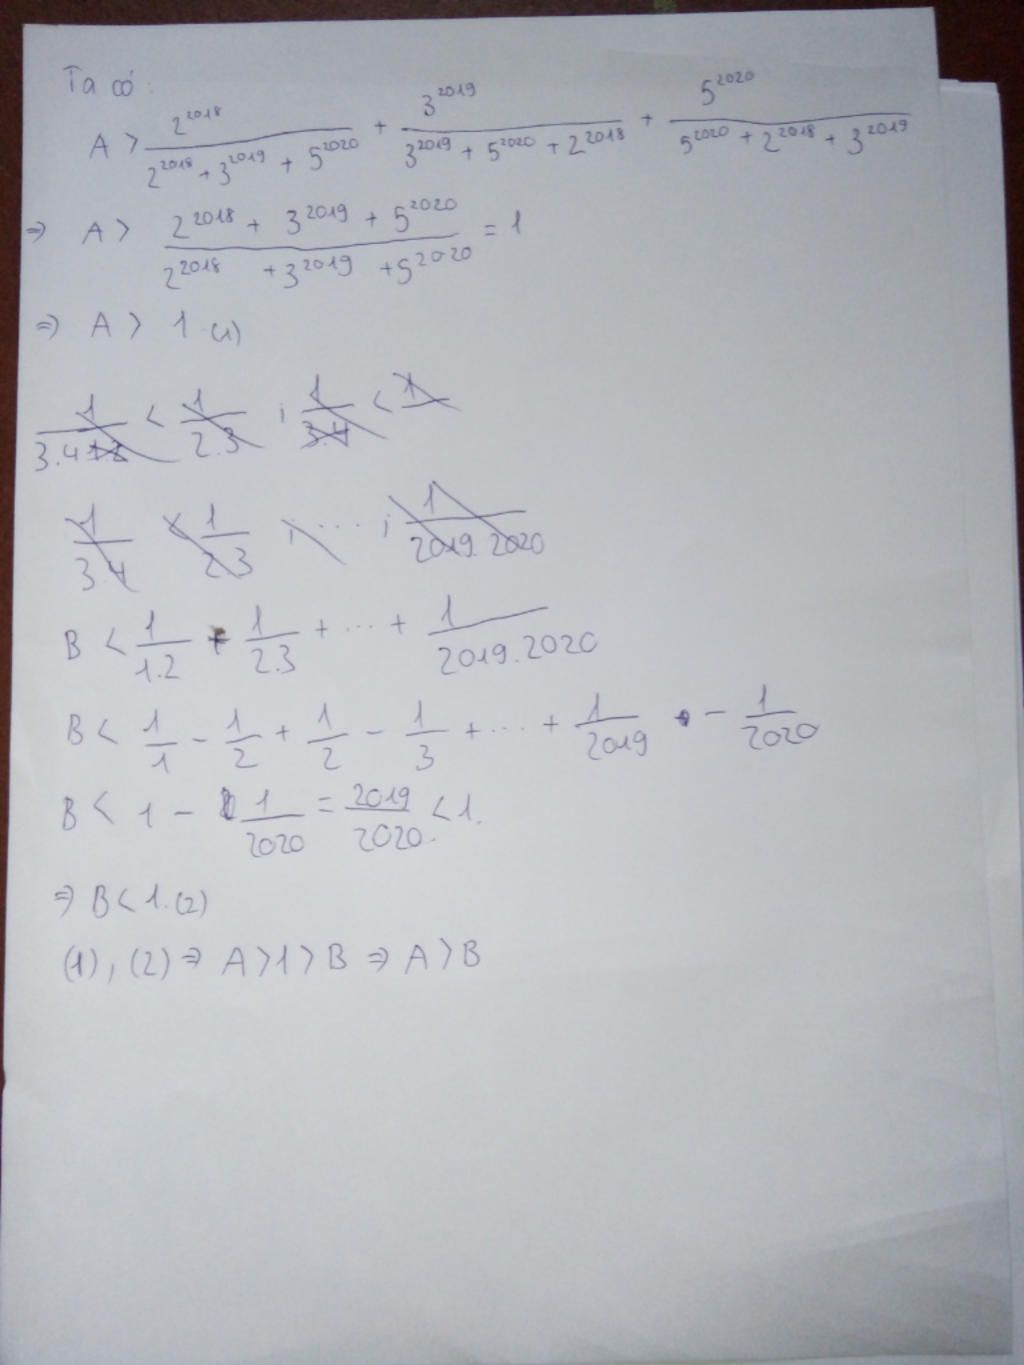 Ta có:
A > 2^2018/(2^2018 + 3^2019 + 5^2020) + 3^2019/(3^2019 + 5^2020 + 2^2018) + 5^2020/(5^2020 + 2^2018 + 3^2019)
⇒ A > (2^2018 + 3^2019 + 5^2020)/(2^2018 + 3^2019 + 5^2020) = 1
⇒ A > 1 (1)
1/3.4 < 1/2.3 ; 1/3.4 < 1
1/3.4 < 1/2.3 ; ... ; 1/2019.2020
B < 1/1.2 + 1/2.3 + ... + 1/2019.2020
B < 1/1 - 1/2 + 1/2 - 1/3 + ... + 1/2019 - 1/2020
B < 1 - 1/2020 = 2019/2020 < 1.
⇒ B < 1. (2)
(1), (2) ⇒ A > 1 > B ⇒ A > B